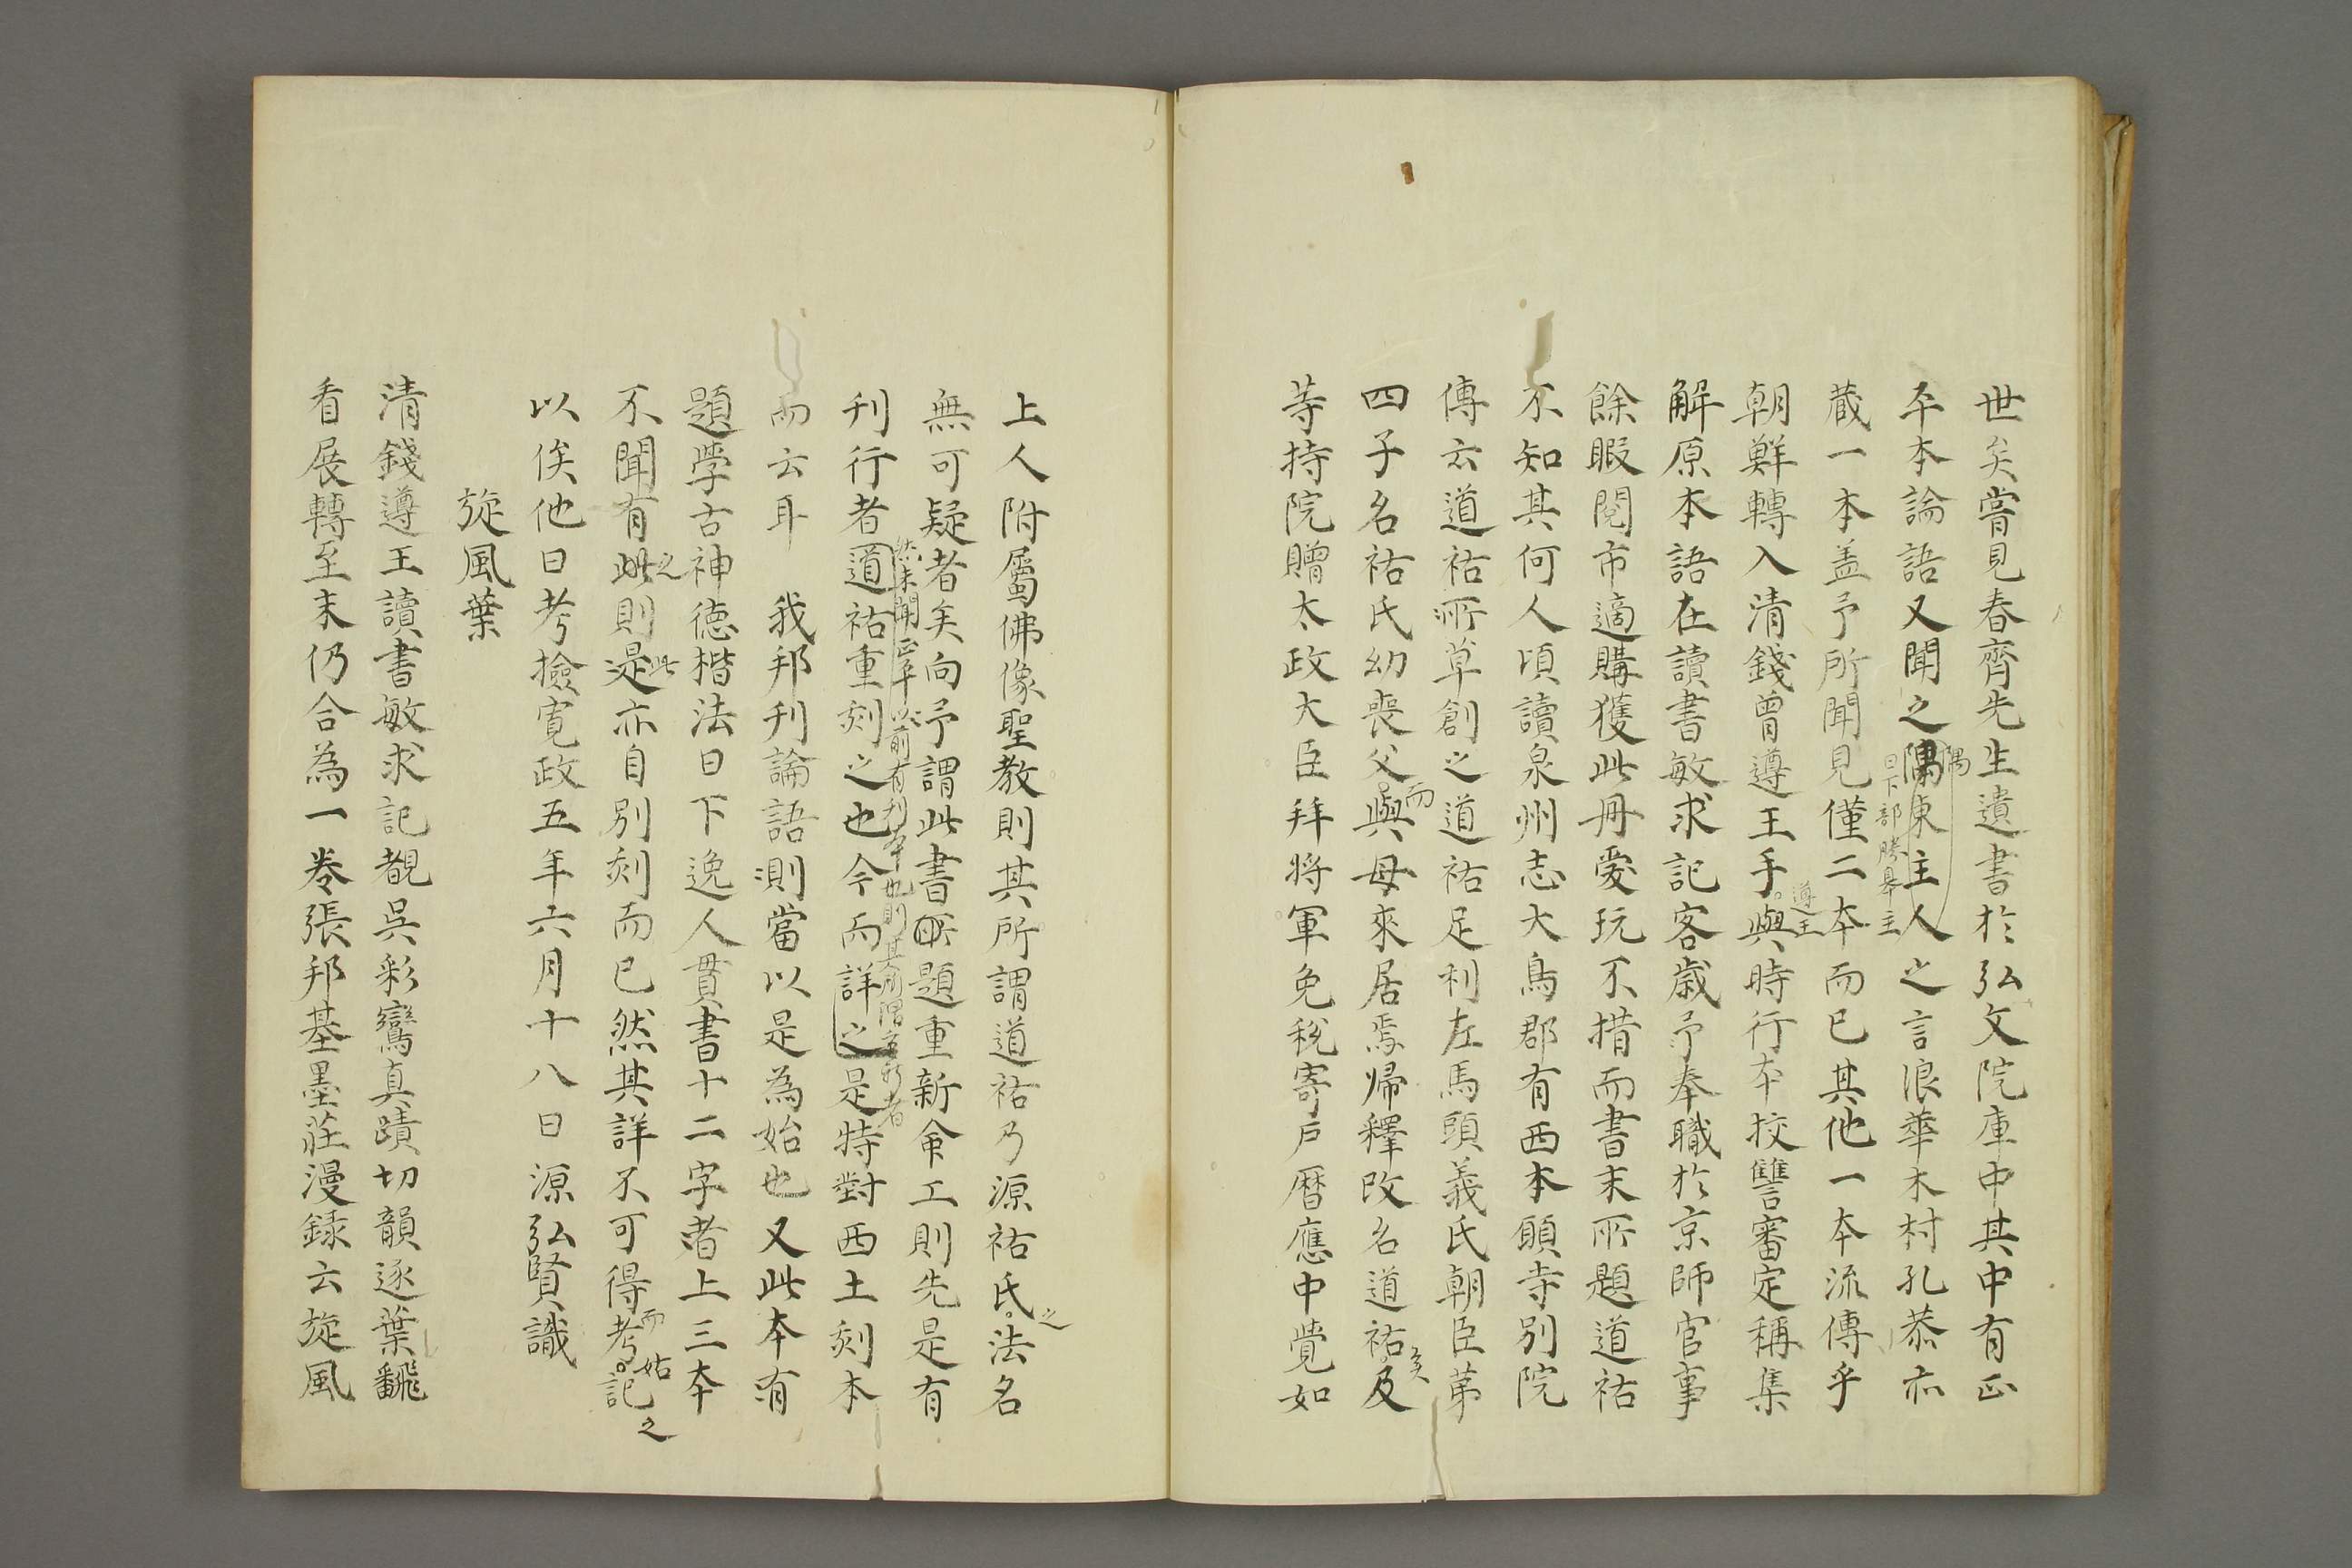 世矣嘗見春齊先生遺書於弘文院庫中其中有正
平本論語又聞之隅東主人之言浪華木村孔恭亦
隅
日下部勝皐主
蔵一本盖予所聞見僅二本而已其他一本流傳乎
朝鮮轉入清錢曾遵王手與時行本挍讐審定稱集
遵王
解原本語在讀書敏求記客歳予奉職於京師官事
餘暇閲市適購獲此冊愛玩不措而書末所題道祐
不知其何人頃讀泉州志大鳥郡有西本願寺別院
傳云道祐所草創之道祐足利左馬頭義氏朝臣第
四子名祐氏幼喪父與母來居焉帰釋改名道祐及
而
矣
䓁持院贈太政大臣拜将軍免税寄戸暦應中覺如
上人附屬佛像聖教則其所謂道祐乃源祐氏法名
之
無可疑者矣向予謂此書所題重新命工則先是有
刊行者道祐重刻之也今而詳之是特對西土刻本
然未聞正平以前有刊本也則其所謂重新者
而云耳　我邦刊論語測當以是為始也又此本有
題学古神徳楷法日下逸人貫書十二字者上三本
不聞有此則是亦自別刻而已然其詳不可得考記
之
此
而姑
之
以俟他日考撿寛政五年六月十八日源弘賢識
旋風葉
清錢遵王讀書敏求記覩呉彩鸞真蹟切韻逐葉飜
看展轉至末仍合為一卷張邦基墨莊漫録云旋風